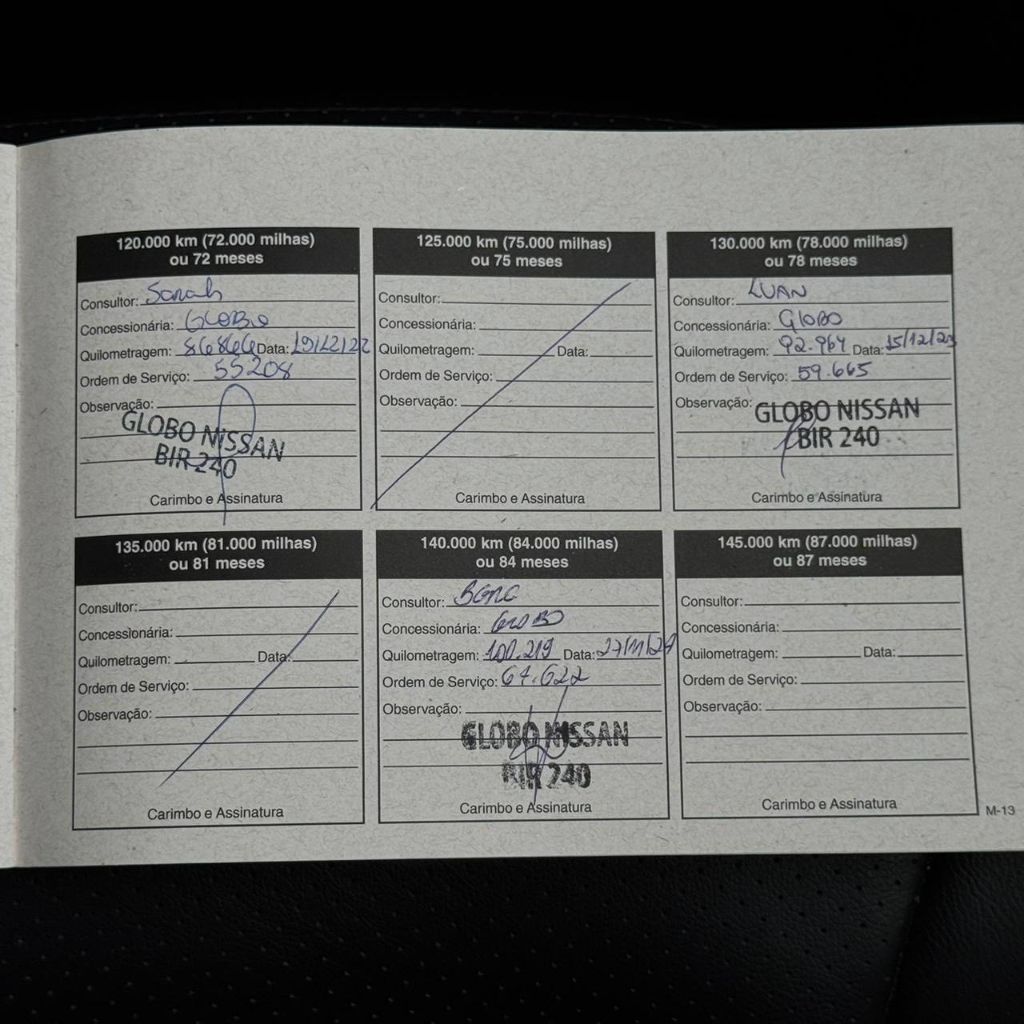 120.000 km (72.000 milhas)
ou 72 meses
Consultor: Sarah
Concessionária: GLOBO
Quilometragem: 86866 Data: 19/12/22
Ordem de Serviço: 55208
Observação:
GLOBO NISSAN
BIR 240
Carimbo e Assinatura
125.000 km (75.000 milhas)
ou 75 meses
Consultor:
Concessionária:
Quilometragem: Data:
Ordem de Serviço:
Observação:
Carimbo e Assinatura
130.000 km (78.000 milhas)
ou 78 meses
Consultor: LUAN
Concessionária: GLOBO
Quilometragem: 92.964 Data: 15/12/23
Ordem de Serviço: 59.665
Observação:
GLOBO NISSAN
BIR 240
Carimbo e Assinatura
135.000 km (81.000 milhas)
ou 81 meses
Consultor:
Concessionária:
Quilometragem: Data:
Ordem de Serviço:
Observação:
Carimbo e Assinatura
140.000 km (84.000 milhas)
ou 84 meses
Consultor:
Concessionária: GLOBO
Quilometragem: 100.219 Data: 27/11/24
Ordem de Serviço: 67.622
Observação:
GLOBO NISSAN
BIR 240
Carimbo e Assinatura
145.000 km (87.000 milhas)
ou 87 meses
Consultor:
Concessionária:
Quilometragem: Data:
Ordem de Serviço:
Observação:
Carimbo e Assinatura
M-13